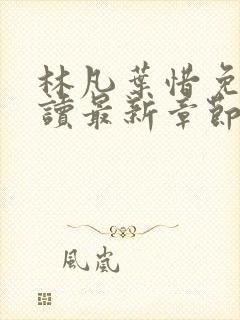 林凡葉惜免
讀最新章節
風嵐